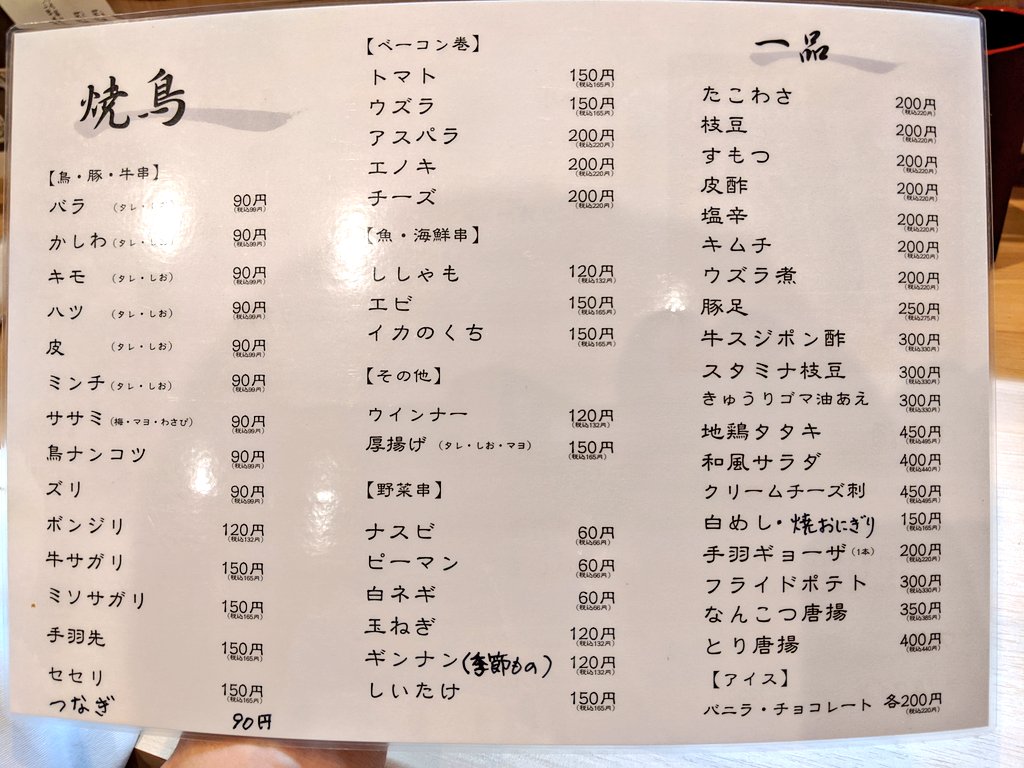 焼鳥
【鳥・豚・牛串】
バラ (タレ・しお) 90円 (税込99円)
かしわ (タレ・しお) 90円 (税込99円)
キモ (タレ・しお) 90円 (税込99円)
ハツ (タレ・しお) 90円 (税込99円)
皮 (タレ・しお) 90円 (税込99円)
ミンチ (タレ・しお) 90円 (税込99円)
ササミ (梅・マヨ・わさび) 90円 (税込99円)
鳥ナンコツ 90円 (税込99円)
ズリ 90円 (税込99円)
ボンジリ 120円 (税込132円)
牛サガリ 150円 (税込165円)
ミソサガリ 150円 (税込165円)
手羽先 150円 (税込165円)
セセリ 150円 (税込165円)
つなぎ 90円
【ベーコン巻】
トマト 150円 (税込165円)
ウズラ 150円 (税込165円)
アスパラ 200円 (税込220円)
エノキ 200円 (税込220円)
チーズ 200円 (税込220円)
【魚・海鮮串】
ししゃも 120円 (税込132円)
エビ 150円 (税込165円)
イカのくち 150円 (税込165円)
【その他】
ウインナー 120円 (税込132円)
厚揚げ (タレ・しお・マヨ) 150円 (税込165円)
【野菜串】
ナスビ 60円 (税込66円)
ピーマン 60円 (税込66円)
白ネギ 60円 (税込66円)
玉ねぎ 120円 (税込132円)
ギンナン(季節もの) 120円 (税込132円)
しいたけ 150円 (税込165円)
一品
たこわさ 200円 (税込220円)
枝豆 200円 (税込220円)
すもつ 200円 (税込220円)
皮酢 200円 (税込220円)
塩辛 200円 (税込220円)
キムチ 200円 (税込220円)
ウズラ煮 200円 (税込220円)
豚足 250円 (税込275円)
牛スジポン酢 300円 (税込330円)
スタミナ枝豆 300円 (税込330円)
きゅうりゴマ油あえ 300円 (税込330円)
地鶏タタキ 450円 (税込495円)
和風サラダ 400円 (税込440円)
クリームチーズ刺 450円 (税込495円)
白めし・焼おにぎり 150円 (税込165円)
手羽ギョーザ (1本) 200円 (税込220円)
フライドポテト 300円 (税込330円)
なんこつ唐揚 350円 (税込385円)
とり唐揚 400円 (税込440円)
【アイス】
バニラ・チョコレート 各200円 (税込220円)